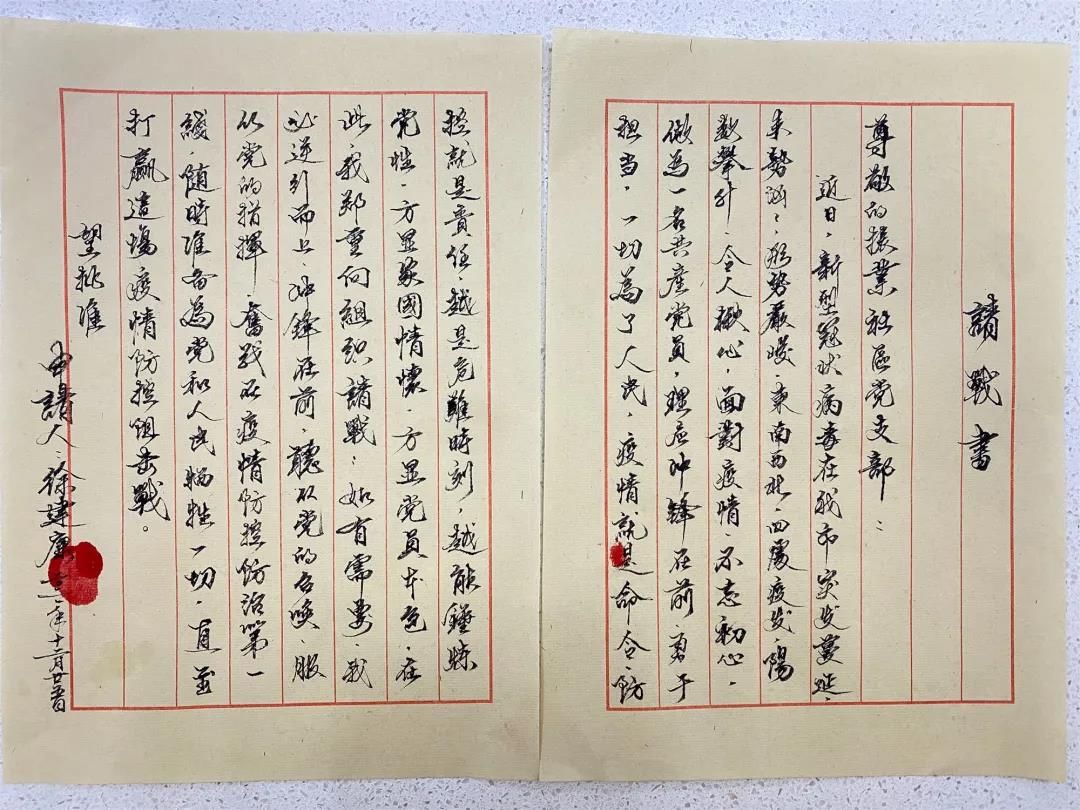 請戰書
尊敬的振業社區党支部：
近日，新型冠状病毒在我市突发蔓延，
来勢汹汹，形势嚴峻，東南西北，四處疫发，陽
数攀升，令人揪心，面對疫情，不忘初心，
做為一名共産党員，理应冲鋒在前，勇于
担当，一切為了人民，疫情就是命令，防
控就是責任，越是危難時刻，越能錘煉
党性，方显家國情懷，方显党員本色，在
此，我郑重向組织請戰：如有需要，我
必逆行而上，冲鋒在前，聽从党的召唤，服
从党的指揮，奮战在疫情防控防治第一
綫，随時准备為党和人民牺牲一切，直至
打贏這場疫情防控阻击戰。
望批准
申請人：徐建康 年十二月廿五日